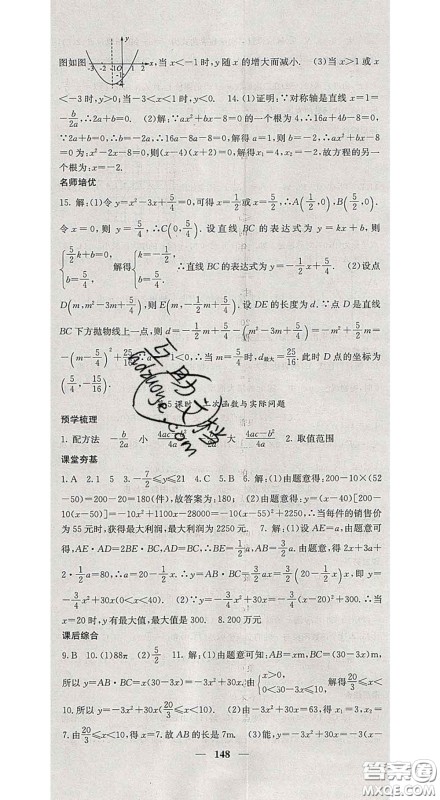 图如图 ,当 x<-1时,y随x的增大而减小. (3)当x>1或x
<-3时,y>0;当-3<x<1时,y<0. 14.(1)证明:∵对称轴是直线x=1=
-b/2a,∴2a+b=0. (2)解:∵ax²+bx-8=0的一个根为4,∴16a+4b-8=0.
∵2a+b=0,∴b=-2a,∴16a-8a-8=0,解得a=1,则b=-2,∴ax²+bx-8=0
为:x²-2x-8=0,则(x-4)(x+2)=0,解得x₁=4,x₂=-2,故方程的另一
个根为:x=-2.
名师培优
15.解:(1)令y=x²-3x+5/4=0,可得x=1/2或x=5/2,∴A(1/2,0),B(5/2,0).
令x=0,则y=5/4,∴C(0,5/4).设直线BC的表达式为y=kx+b,则
{5/2k+b=0, b=5/4, 解得{k=-1/2, b=5/4. ∴直线BC的表达式为y=-1/2x+5/4. (2)设点
D(m,m²-3m+5/4),则E(m,-1/2m+5/4).设DE的长度为d.∵点D是直线
BC下方抛物线上一点,则d=-1/2m+5/4-(m²-3m+5/4),整理得
∵a=-1<0,∴当m=5/4时,d最大=25/16.此时D点的坐标为
(5/4,-15/16).
课时 二次函数与实际问题
预学梳理
1.配方法 -b/2a 小 4ac-b²/4a 大 4ac-b²/4a 2.取值范围
课堂夯基
1.A 2.1 5 3.-7/2≤y≤21 4.C 5.B 6.解:(1)由题意得:200-10×(52
-50)=200-20=180(件),故答案为:180;(2)由题意得:y=(x-40)[200-
10(x-50)]=-10x²+1100x-28000=-10(x-55)²+2250,∴当每件的销售价
为55元时,获得最大利润,最大利润为2250元. 7.解:(1)设AE=a,由题意可
得,AE·AD=2BE·BC,AD=BC,∴BE=1/2a,AB=3/2a.由题意,得2x+3a+
2·1/2a=80,∴a=20-1/2x,∴y=AB·BC=3/2a·x=3/2(20-1/2x)x,即y=
-3/4x²+30x(0<x<40). (2)∵y=-3/4x²+30x=-3/4(x-20)²+300,∴当x
=20时,y有最大值,最大值是300. 8.200万元
课后综合
9.B 10.(1)88π (2)5/2 11.解:(1)由题意可知:AB=xm,BC=(30-3x)m,
所以y=AB·BC=x(30-3x)=-3x²+30x.由{x>0, 0<30-3x≤10, 解得20/3≤x<
10.所以y=-3x²+30x(20/3≤x<10). (2)由-3x²+30x=63,得x₁=3,x₂=
7.由20/3≤x<10,得x=7.故AB的长是7m. (3)能,y=-3x²+30x=-3(x-
148
互助文档
hdzuoye.com
答案圈
MXQE.COM